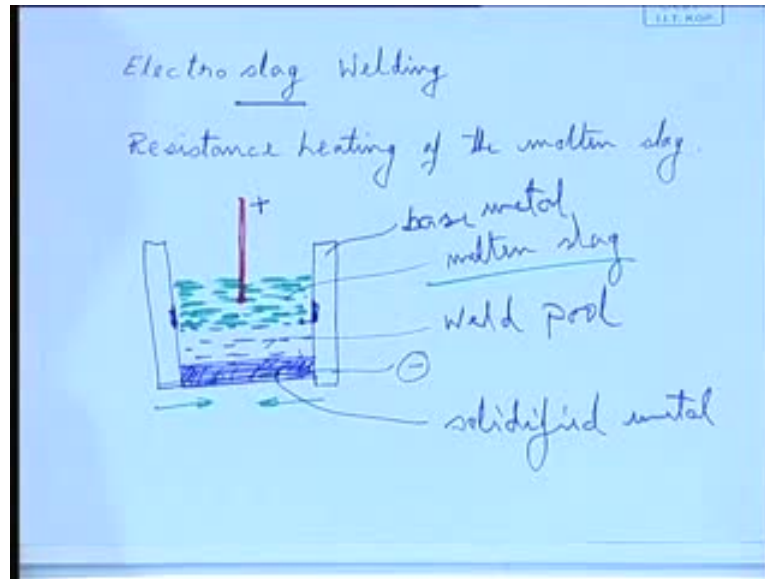 I.I.T. KGP
Electro slag Welding
Resistance heating of the molten slag.
+
base metal
molten slag
weld pool
-
solidified metal